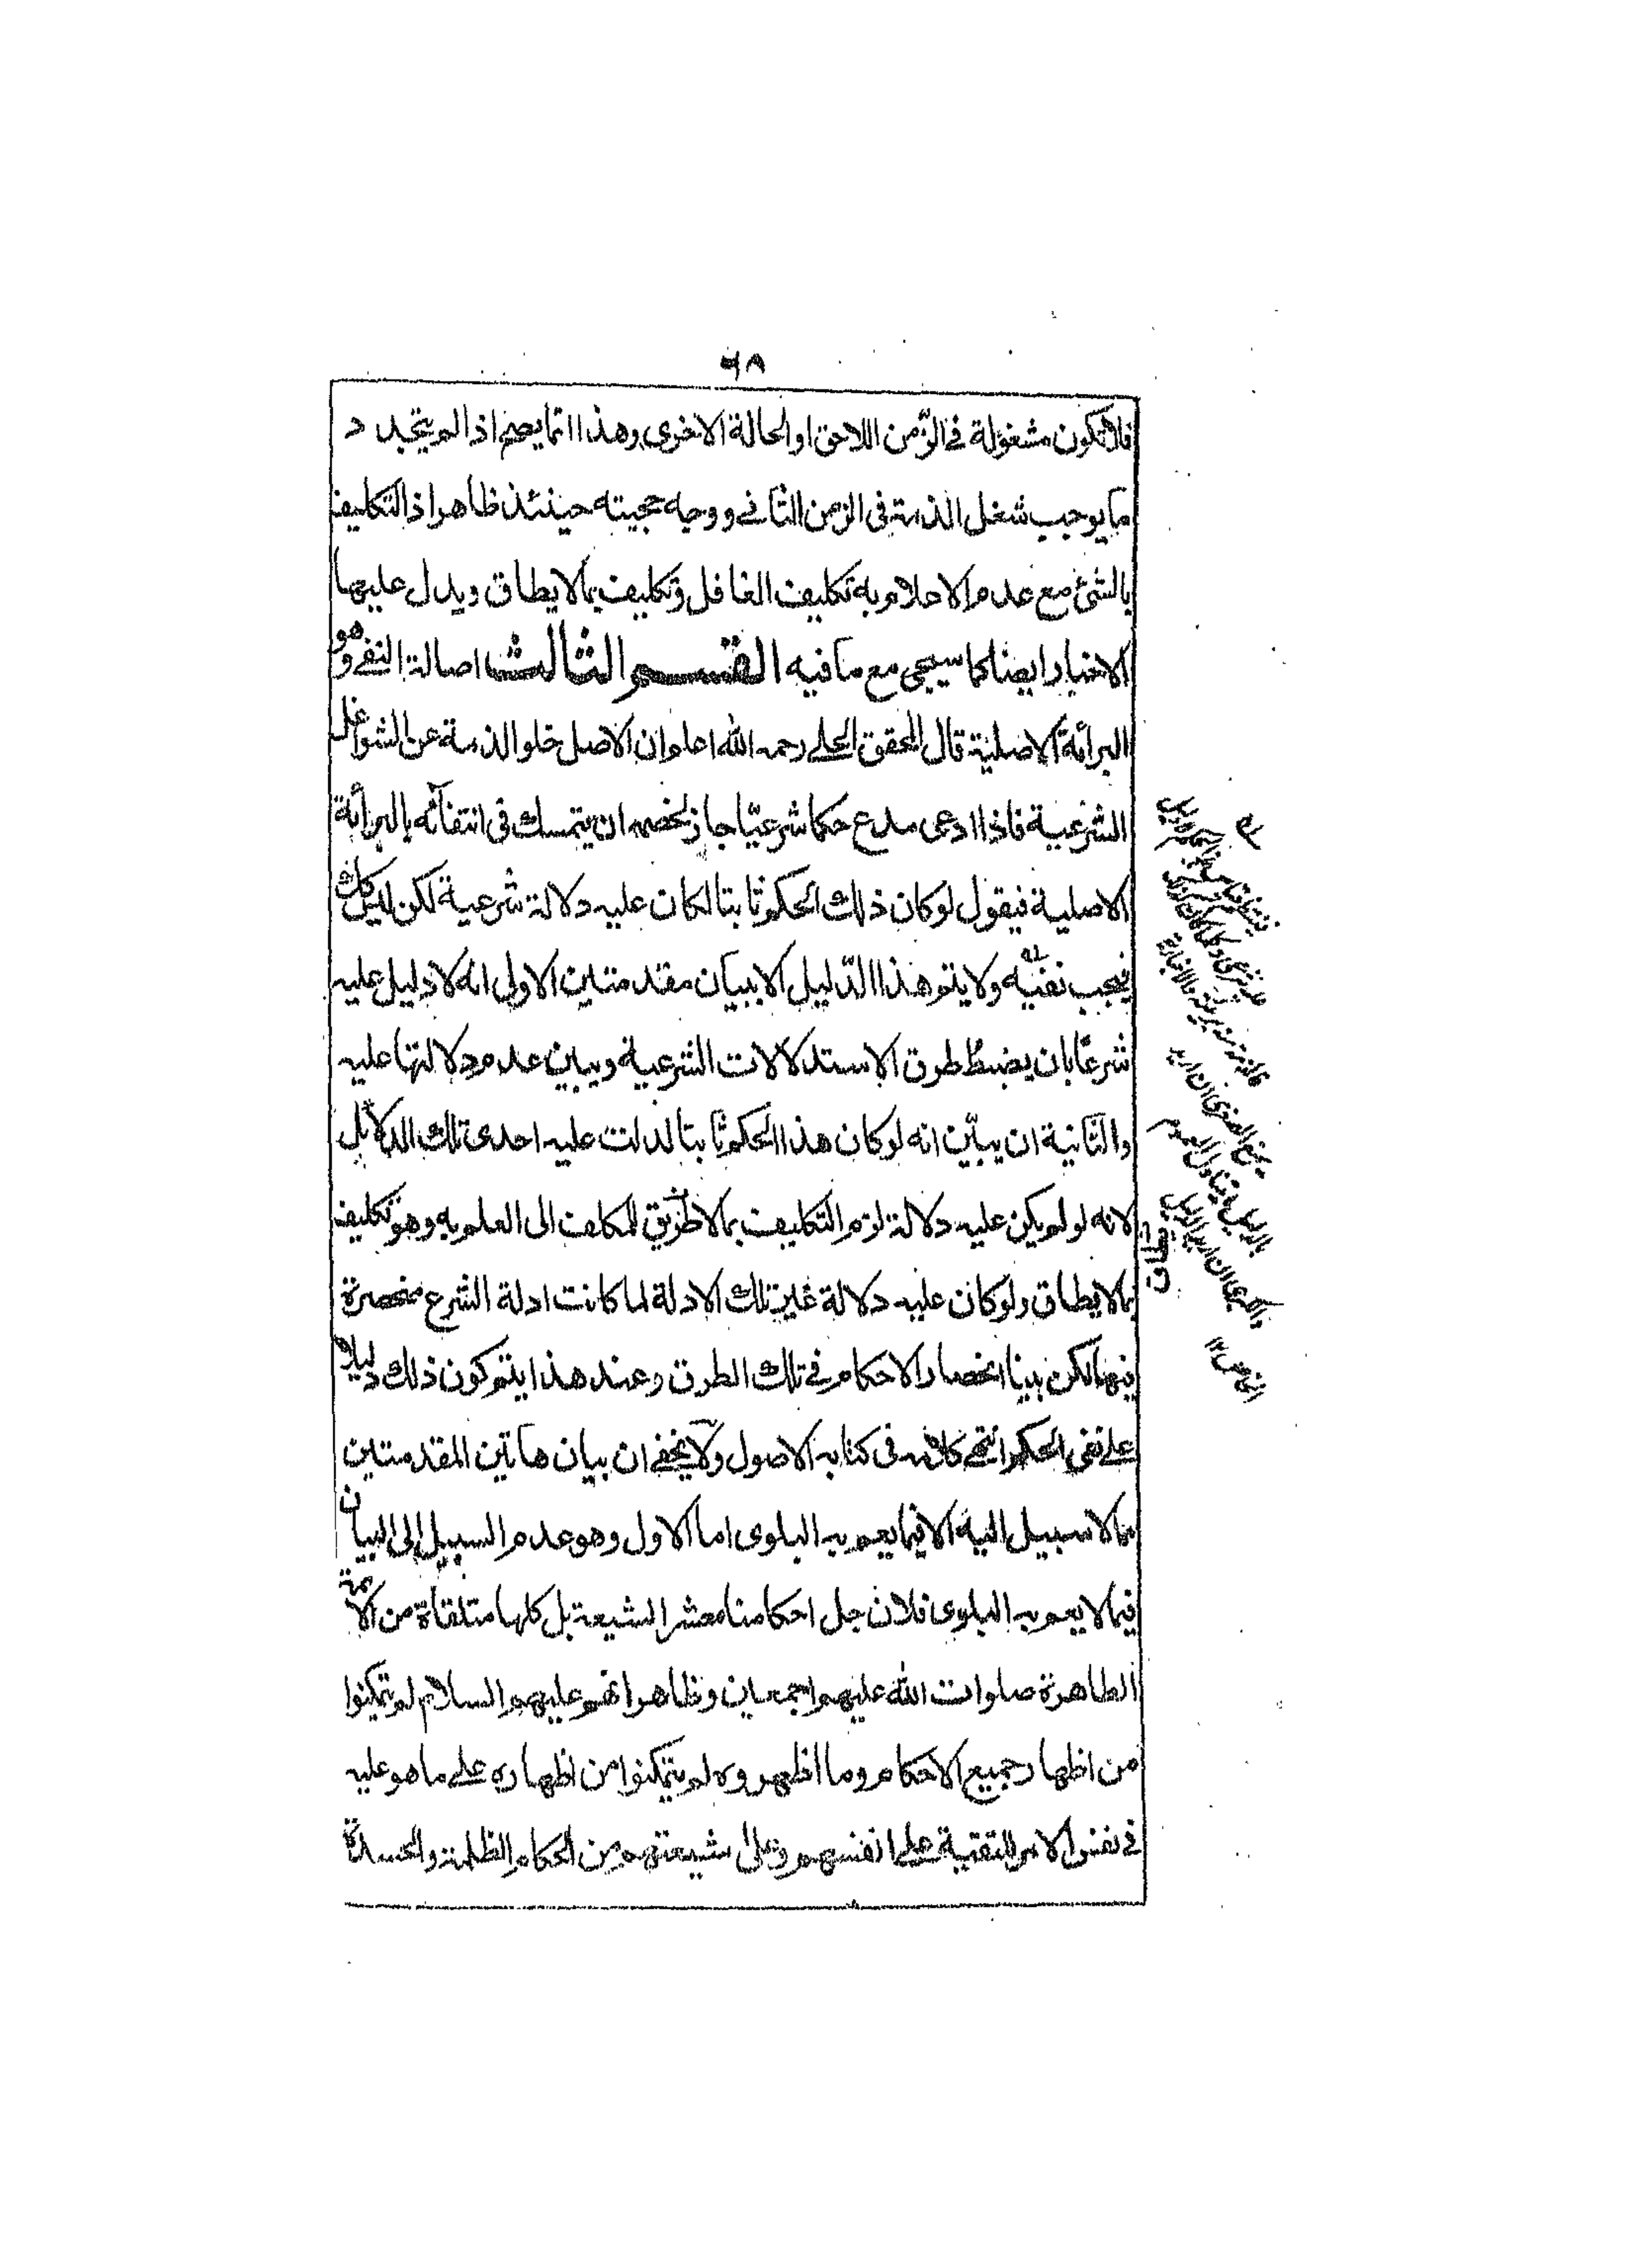 ٦٨
فلا تكون مشغولة فى الزّمن اللاحق او الحالة الاخرى وهذا انّما يصح اذا لم يتجدد
ما يوجب شغل الذمة فى الزمن الثانى ووجه حجيته حينئذ ظاهر اذ التكليف
بالشئ مع عدم الاعلام به تكليف الغافل وتكليف بما لا يطاق ويدل عليها
الاخبار ايضا كما سيجى مع ما فيه القسم الثالث اصالة النفى وهو
البرائة الاصلية قال المحقق الحلى رحمه الله اعلم ان الاصل خلو الذمة عن الشواغل
الشرعية فاذا ادعى مدع حكما شرعيّا جاز لخصمه ان يتمسك فى انتفائه بالبرائة
الاصلية فيقول لو كان ذلك الحكم ثابتا لكان عليه دلالة شرعية لكن ليس كذلك
فيجب نفيه ولا يتم هذا الدّليل الا ببيان مقدمتين الاولى انه لا دليل عليه
شرعًا بان يضبط طرق الاستدلالات الشرعية ويبين عدم دلالتها عليه
والثّانية ان يبيّن انه لو كان هذا الحكم ثابتا لدلت عليه احدى تلك الدلائل
لانه لو لم يكن عليه دلالة لزم التكليف بما لا طريق للمكلف الى العلم به وهو تكليف
بما لا يطاق ولو كان عليه دلالة غير تلك الادلة لما كانت ادلة الشرع منحصرة
فيها لكن بينا انحصار الاحكام فى تلك الطرق وعند هذا يتم كون ذلك دليلا
على نفى الحكم انتهى كلامه فى كتابه الاصول ولا يخفى ان بيان هاتين المقدمتين
مما لا سبيل اليه الا فيما يعم به البلوى اما الاول وهو عدم السبيل الى البيان
فيما لا يعم به البلوى فلان جل احكامنا معشر الشيعة بل كلها متلقاة من الائمة
الطاهرة صلوات الله عليهم اجمعين وظاهر انهم عليهم السلام لم يتمكنوا
من اظهار جميع الاحكام وما اظهروه لم يتمكنوا من اظهاره على ما هو عليه
فى نفس الامر للتقية على انفسهم وعلى شيعتهم من الحكام الظلمة والحسدة